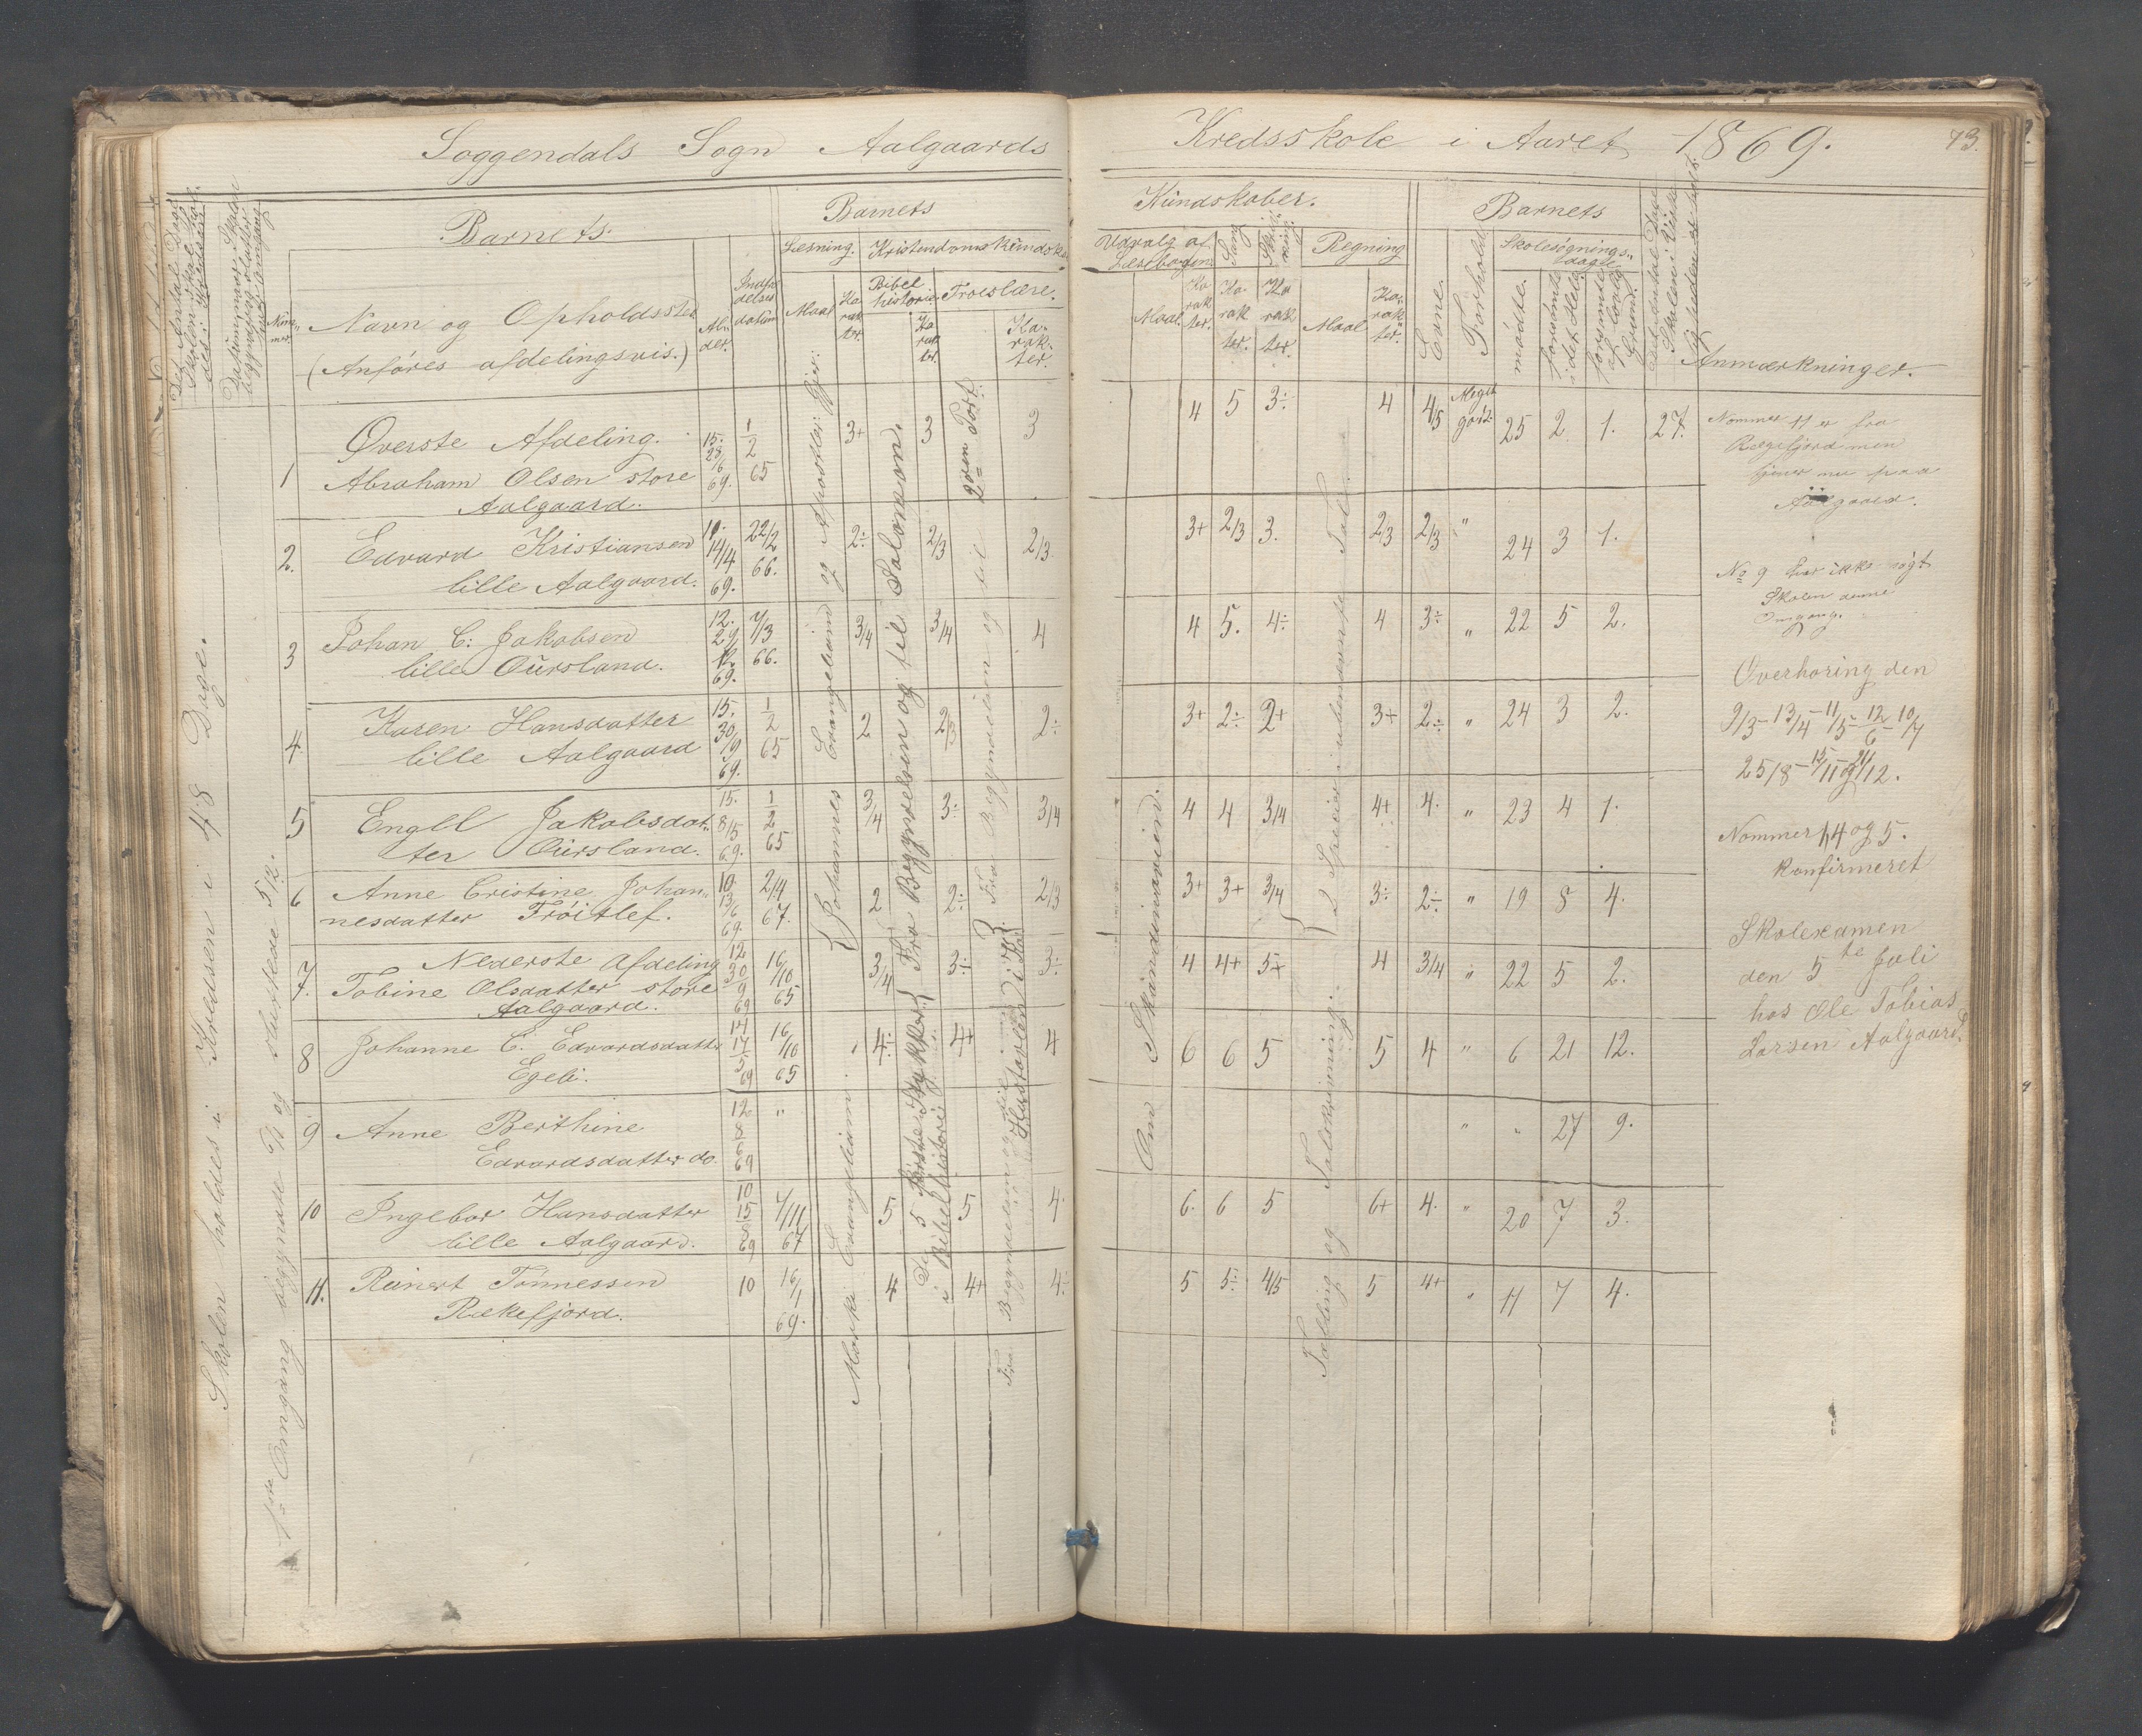 Soggendals Sogn Aalgaards Kredsskole i Aaret 1869.
73.
Barnets
Barnets Kundskaber.
Barnets
Det Antal Dage Skolen skal holdes i Kredsen
Datummer Skolen begynder og slutter hver Omgang
Nommer.
Navn og Opholdssted
(Anføres afdelingsvis.)
Alder.
Indtrædelsesdatum
Læsning.
Maal
Karakter.
Kristendomskundskab
Bibelhistorie
Karakter.
Troeslære.
Karakter.
Udvalg af Læsebogen
Maal.
Karakter.
Sang
Karakter.
Skrivning.
Karakter.
Regning
Maal
Karakter.
Evne.
Forhold.
Skolesøgningsdage
mødte.
forsømte i det Hele.
forsømte af lovlig Grund.
Det Antal Dage Skolen i Virkeligheden er holdt.
Anmærkninger.
Skolen holdes i Kredsen i 48 Dage.
Øverste Afdeling.
1 Abraham Olsen store Aalgaard. 15. 28/6 69. 1/2 65 3+ 3 3 4 5 3÷ 4 4/5 Meget godt. 25 2 1. 27.
2. Edvard Kristiansen lille Aalgaard. 14/4 69. 22/2 66. 2÷ 2/3 2/3 3+ 2/3 3. 2/3 2/3 " 24 3 1.
3 Johan C: Jakobsen lille Oursland. 12. 69. 7/3 66. 3/4 3/4 4 4 5. 4÷ 4 3÷ " 22 5 2.
4. Karen Hansdatter lille Aalgaard 15. 30/9 69. 1/2 65 2 2/3 2÷ 3+ 2÷ 2+ 3+ 2÷ " 24 3 2.
5 Engll Jakobsdatter Oursland. 15. 8/5 69. 1/2 65 3/4 3÷ 3/4 4 4 3/4 4+ 4. " 23 4 1.
6 Anne Cristine Johannesdatter Frøitlef. 10. 13/6 69. 2/4 67. 2 2÷ 2/3 3+ 3+ 3/4 3÷ 2÷ " 19 8 4.
Nederste Afdeling
7. Tobine Olsdatter store Aalgaard. 12 30/9 69 16/10 65 3/4 3÷ 3÷ 4 4+ 5+ 4 3/4 " 22 5 2.
8 Johanne C. Edvardsdatter Egeli. 14 69 16/10 65 4÷ 4+ 4 6 6 5 5 4 " 6 21 12.
9 Anne Berthine Edvardsdatter do. 12 69 " " " 27 9.
10 Ingebor Hansdatter lille Aalgaard. 10 15/8 69 4/11 67 5 5 4. 6. 6 5 6+ 4. " 20 7 3.
11. Reinert Tønnessen Rækefjord. 10 16/1 69. 4 4+ 4÷ 5 5÷ 4/5 5 4+ " 11 7 4.
Johannes Evangelium og Apostler:
Fra Begyndelsen og til Salomon.
Fra Begyndelsen og til 2den Part.
Marki Evangelium.
De 5 første Stykker i Bibelhistorie
Fra Begyndelsen og til Hustavlen
Om Skandinavien.
2 Species i ubenævnte Tal.
Tælling og Talskrivning.
Nommer 11 er fra
Rægefjord men
tjener nu paa
Aalgaard.
No 9 har ikke søgt
Skolen denne
Omgang.
Overhøring den
9/3 – 13/4 – 11/5 – 12/6 – 10/7
25/8 – 15/11 og 21/12.
Nommer 1, 4 og 5.
konfirmeret
Skolexamen
den 5te Juli
hos Ole Tobias
Larsen Aalgaard.